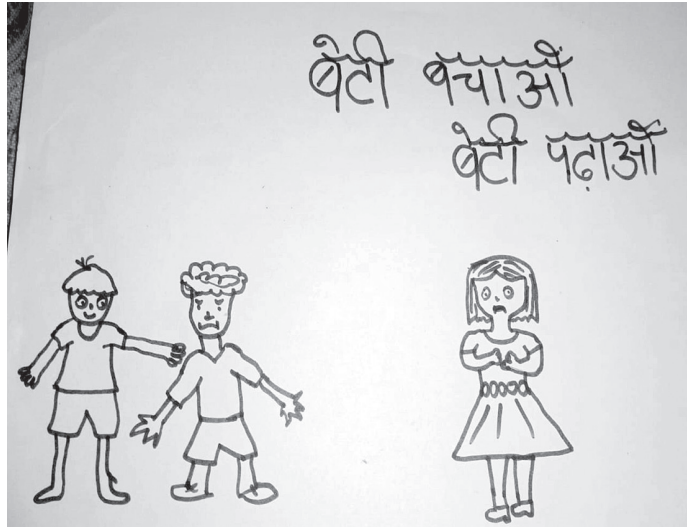 बेटी बचाओं
बेटी पढ़ाओं